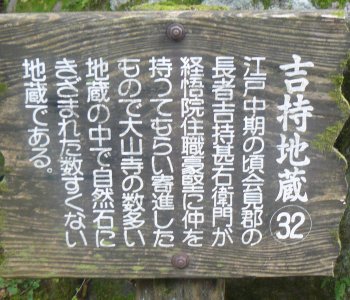 吉持地蔵
32
江戸中期の頃会見郡の
長者吉持甚右衛門が
経悟院住職豪堅に仲を
持ってもらい寄進した
もので大山寺の数多い
地蔵の中で自然石に
きざまれた数すくない
地蔵である。